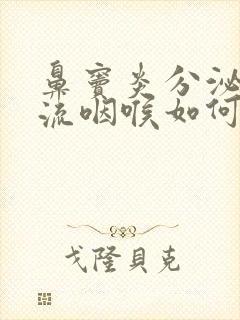 鼻窦炎分泌
流咽喉如何
戈隆貝克